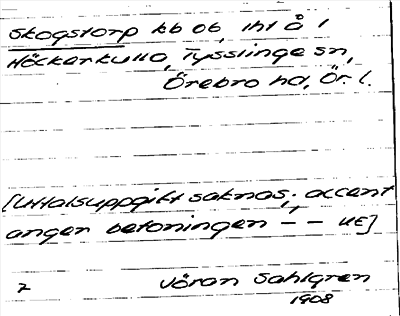 Skogstorp kb ob, iht å 1
Höckerkulla, Tysslinge sn,
Örebro hd, Ör. l.
[Uttalsuppgift saknas; accent
anger betoningen – – UE]
2 Jöran Sahlgren
1908